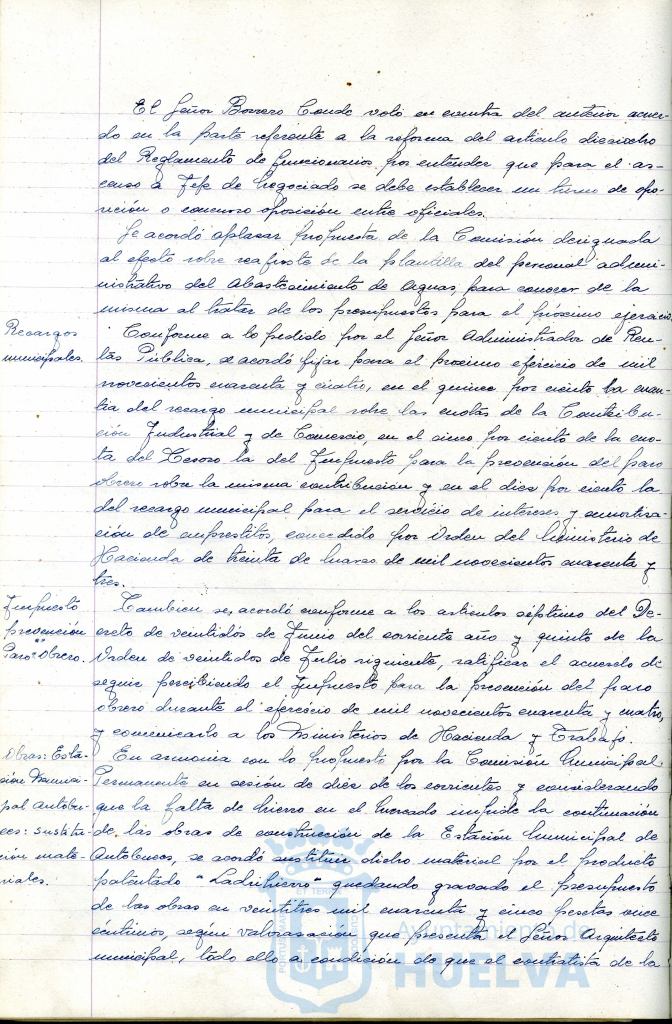 El Señor Borrero Conde votó en contra del anterior acuer-
do en la parte referente a la reforma del articulo dieciocho
del Reglamento de funcionarios por entender que para el as-
censo a Jefe de Negociado se debe establecer un turno de opo-
sición o concurso oposición entre oficiales.
Se acordó aplazar propuesta de la Comisión designada
al efecto sobre reajuste de la plantilla del personal admi-
nistrativo del Abastecimiento de Aguas para conocer de la
misma al tratar de los presupuestos para el próximo ejercicio.
Recargos
municipales.
Conforme a lo pedido por el Señor Administrador de Ren-
tas Pública, se acordó fijar para el proximo ejercicio de mil
novecientos cuarenta y cuatro, en el quince por ciento la cuan-
tia del recargo municipal sobre las cuotas de la Contribu-
ción Industrial y de Comercio, en el cinco por ciento de la cuo-
ta del Tesoro la del Impuesto para la prevención del paro
obrero sobre la misma contribución y en el diez por ciento la
del recargo municipal para el servicio de intereses y amortiza-
ción de emprestitos, concedido por Orden del Ministerio de
Hacienda de treinta de Marzo de mil novecientos cuarenta y
tres.
Impuesto
prevención
Paro Obrero.
Tambien se acordó conforme a los articulos séptimo del De-
creto de veintidós de Junio del corriente año y quinto de la
Orden de veintidos de Julio siguiente, ratificar el acuerdo de
seguir percibiendo el Impuesto para la prevención del paro
obrero durante el ejercicio de mil novecientos cuarenta y cuatro,
y comunicarlo a los Ministerios de Hacienda y Trabajo.
Obras: Esta-
ción Munici-
pal autobu-
ses: sustitu-
ción mate-
riales.
En armonia con lo propuesto por la Comisión Municipal
Permanente en sesión de diez de los corrientes y considerando
que la falta de hierro en el mercado impide la continuación
de las obras de construcción de la Estación Municipal de
Autobuses, se acordó sustituir dicho material por el producto
patentado "Ladrihierro" quedando gravado el presupuesto
de las obras en veintitres mil cuarenta y cinco pesetas once
céntimos, según valorasación que presenta el Señor Arquitecto
municipal, todo ello a condición de que el contratista de la
Ayuntamiento de
HUELVA